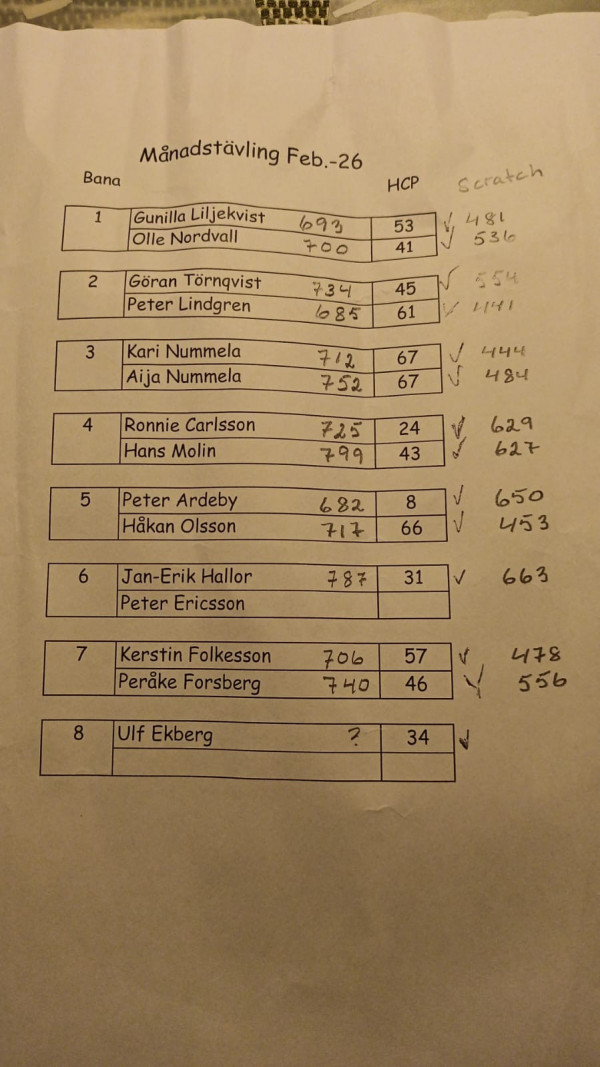 Månadstävling Feb.-26
Bana HCP Scratch
1 Gunilla Liljekvist 693 53 ✓ 481
Olle Nordvall 700 41 ✓ 536
2 Göran Törnqvist 734 45 ✓ 554
Peter Lindgren 685 61 ✓ 441
3 Kari Nummela 712 67 ✓ 444
Aija Nummela 752 67 ✓ 484
4 Ronnie Carlsson 725 24 ✓ 629
Hans Molin 799 43 ✓ 627
5 Peter Ardeby 682 8 ✓ 650
Håkan Olsson 717 66 ✓ 453
6 Jan-Erik Hallor 787 31 ✓ 663
Peter Ericsson
7 Kerstin Folkesson 706 57 ✓ 478
Peråke Forsberg 740 46 ✓ 556
8 Ulf Ekberg ? 34 ✓